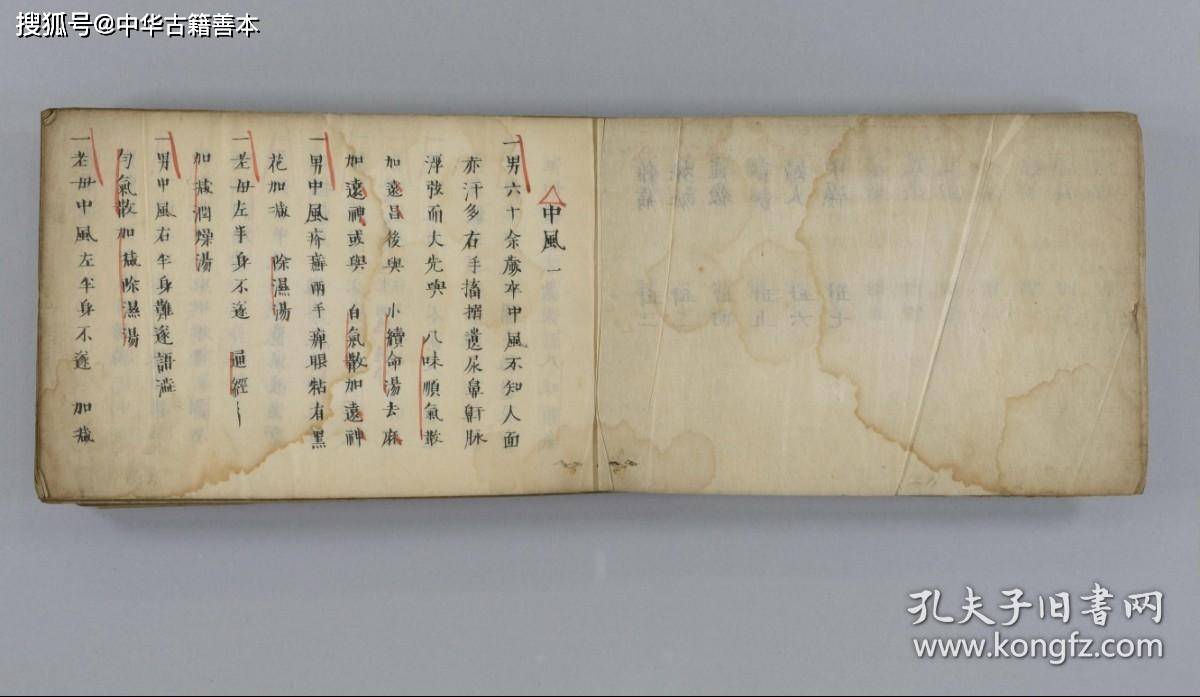 搜狐号@中华古籍善本
中風 一
一男六十余歳卒中風不知人面
亦汗多右手搐搦遺尿鼻鼾脉
浮弦而大先與 八味順氣散
加遠昌後與 小續命湯去麻
加遠神或與 白氣散加遠神
一男中風疥癬両手痺眼粘有黒
花加減 除濕湯
一老母左半身不遂 通經
加減潤燥湯
一男中風右半身難遂語澁
匀氣散加減除濕湯
一老毋中風左半身不遂 加減
孔夫子旧书网
www.kongfz.com